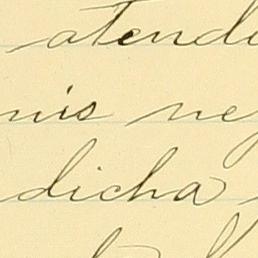 atend
mis ne
dicha